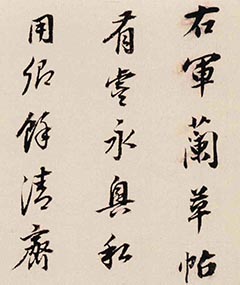 右軍蘭草帖
有虞永興私
用印餘清齋